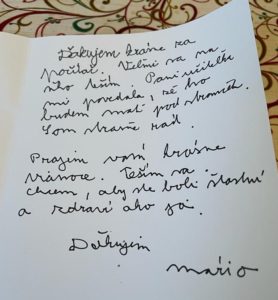 Ďakujem krásne za
počítač. Veľmi sa na
neho teším. Pani učiteľka
mi povedala, že ho
budem mať pod stromček.
Som strašne rád.
Prajem vám krásne
Vianoce. Teším sa.
Chcem, aby ste boli šťastní
a zdraví ako ja.
Ďakujem
Mário